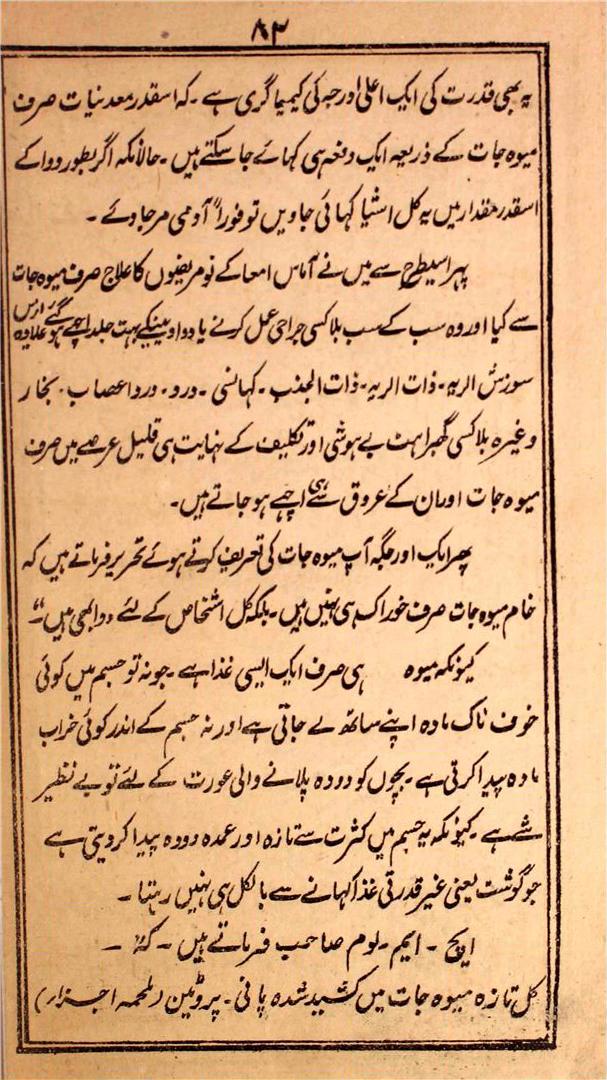 ۸۳
یہ بھی قدرت کی ایک اعلیٰ درجہ کی کیمیا گری ہے ۔ کہ اسقدر معدنیات صرف
میوہ جات کے ذریعہ ایک دفعہ ہی کہائے جا سکتے ہیں ۔ حالانکہ اگر بطور دوا کے
اسقدر مقدار میں یہ کل اشیا کہائی جاویں تو فوراً آدمی مر جاوے ۔
پہر اسیطرح سے میں نے آماس امعا کے نو مریضوں کا علاج صرف میوہ جات
سے کیا اور وہ سب کے سب بلا کسی جراحی عمل کرنے یا دوا وینیکے بہت جلد اچھے ہو گئے اور اس علاوہ
سوزش الریہ ۔ ذات الریہ ۔ ذات الجنب ۔ کہانسی ۔ درد ۔ درد اعصاب ۔ بخار
وغیرہ بلا کسی گھبراہٹ بے ہوشی اور تکلیف کے نہایت ہی قلیل عرصے میں صرف
میوہ جات اور ان کے عروق سے ہی اچھے ہو جاتے ہیں ۔
پھر ایک اور جگہ آپ میوہ جات کی تعریف کرتے ہوئے تحریر فرماتے ہیں کہ
خام میوہ جات صرف خوراک ہی نہیں ہیں ۔ بلکہ کل اشخاص کے لئے دوا بھی ہیں ۔"
کیونکہ میوہ ہی صرف ایک ایسی غذا ہے ۔ جو نہ تو جسم میں کوئی
خوف ناک مادہ اپنے ساتھ لے جاتی ہے اور نہ جسم کے اندر کوئی خراب
مادہ پیدا کرتی ہے ۔ بچوں کو دودہ پلانے والی عورت کے لئے تو بے نظیر
شے ہے ۔ کیونکہ یہ جسم میں کثرت سے تازہ اور عمدہ دودہ پیدا کر دیتی ہے
جو گوشت یعنی غیر قدرتی غذا کہانے سے بالکل ہی نہیں رہتا ۔
ایچ ۔ ایم ۔ لوم صاحب فرماتے ہیں ۔ کہ ۔
کل تازہ میوہ جات میں کشید شدہ پانی ۔ پروٹین (ملحمہ اجزار)